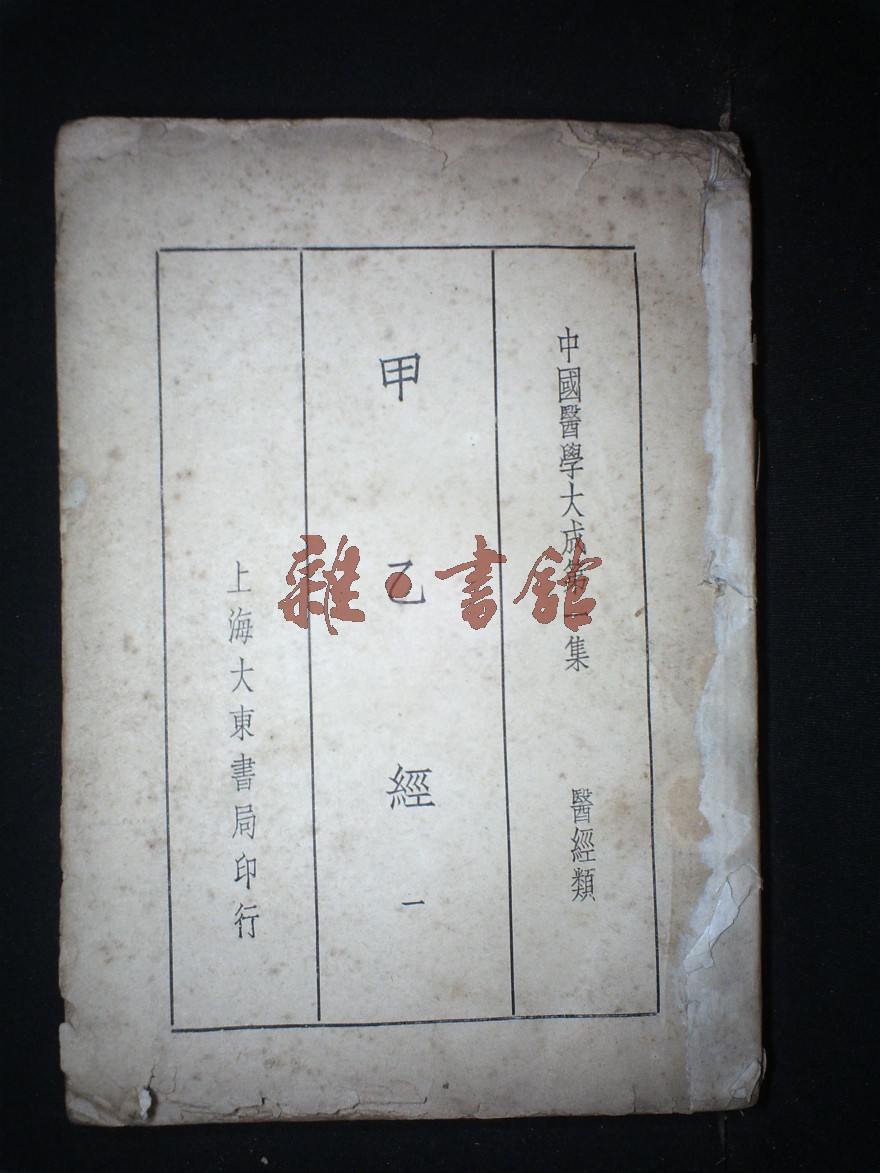 中國醫學大成第一集 醫經類
甲乙經 一
上海大東書局印行
雜書館